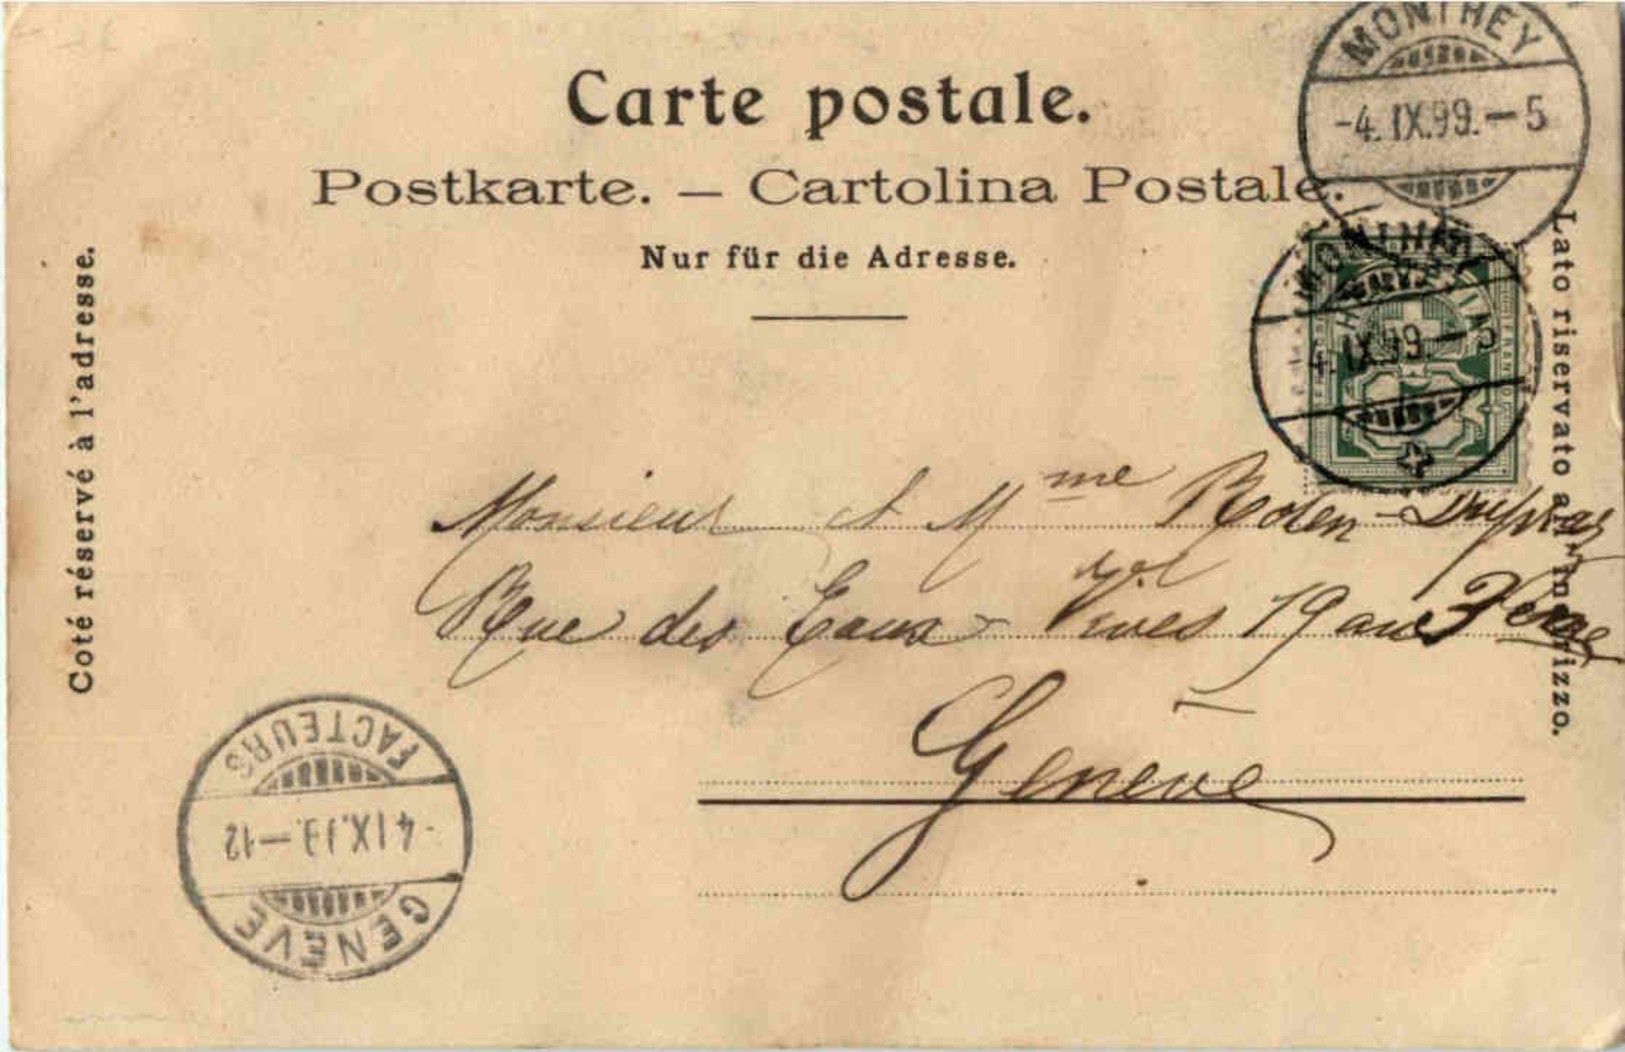 Carte postale.
Postkarte. — Cartolina Postale.
Nur für die Adresse.
Coté réservé à l'adresse.
Lato riservato all'indirizzo.
MONTHEY
-4.IX.99.—5
MONTHEY
4.IX.99—5
Monsieur et Mme
Rue des Eaux-Vives 19 au
Genève
FACTEURS
-4.IX.99.—12
GENÈVE